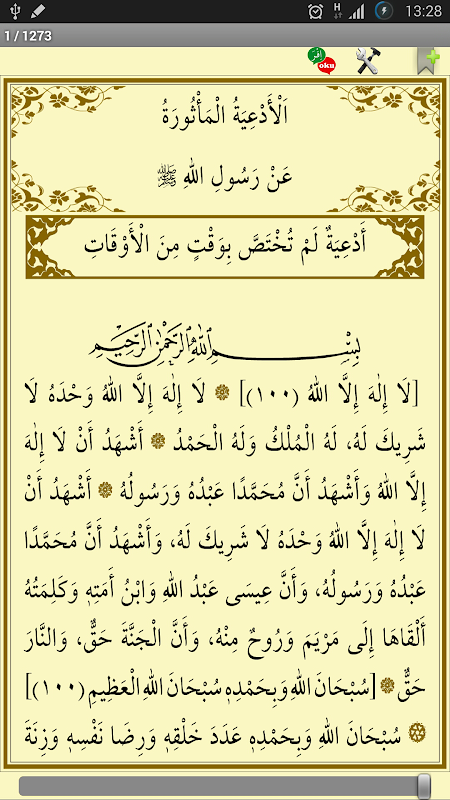 13:28
1 / 1273
اقرأ
oku
اَلْأَدْعِيَةُ الْمَأْثُورَةُ
عَنْ رَسُولِ اللهِ ﷺ
أَدْعِيَةٌ لَمْ تُخْتَصَّ بِوَقْتٍ مِنَ الْأَوْقَاتِ
بِسْمِ اللهِ الرَّحْمٰنِ الرَّحِيمِ
[لَا إِلٰهَ إِلَّا اللهُ (١٠٠)] ۞ لَا إِلٰهَ إِلَّا اللهُ وَحْدَهُ لَا
شَرِيكَ لَهُ، لَهُ الْمُلْكُ وَلَهُ الْحَمْدُ ۞ أَشْهَدُ أَنْ لَا إِلٰهَ
إِلَّا اللهُ وَأَشْهَدُ أَنَّ مُحَمَّدًا عَبْدُهُ وَرَسُولُهُ ۞ أَشْهَدُ أَنْ
لَا إِلٰهَ إِلَّا اللهُ وَحْدَهُ لَا شَرِيكَ لَهُ، وَأَشْهَدُ أَنَّ مُحَمَّدًا
عَبْدُهُ وَرَسُولُهُ، وَأَنَّ عِيسَى عَبْدُ اللهِ وَابْنُ أَمَتِهِ وَكَلِمَتُهُ
أَلْقَاهَا إِلَى مَرْيَمَ وَرُوحٌ مِنْهُ، وَأَنَّ الْجَنَّةَ حَقٌّ، وَالنَّارَ
حَقٌّ ۞ [سُبْحَانَ اللهِ وَبِحَمْدِهِ سُبْحَانَ اللهِ الْعَظِيمِ (١٠٠)]
۞ سُبْحَانَ اللهِ وَبِحَمْدِهِ عَدَدَ خَلْقِهِ وَرِضَا نَفْسِهِ وَزِنَةَ